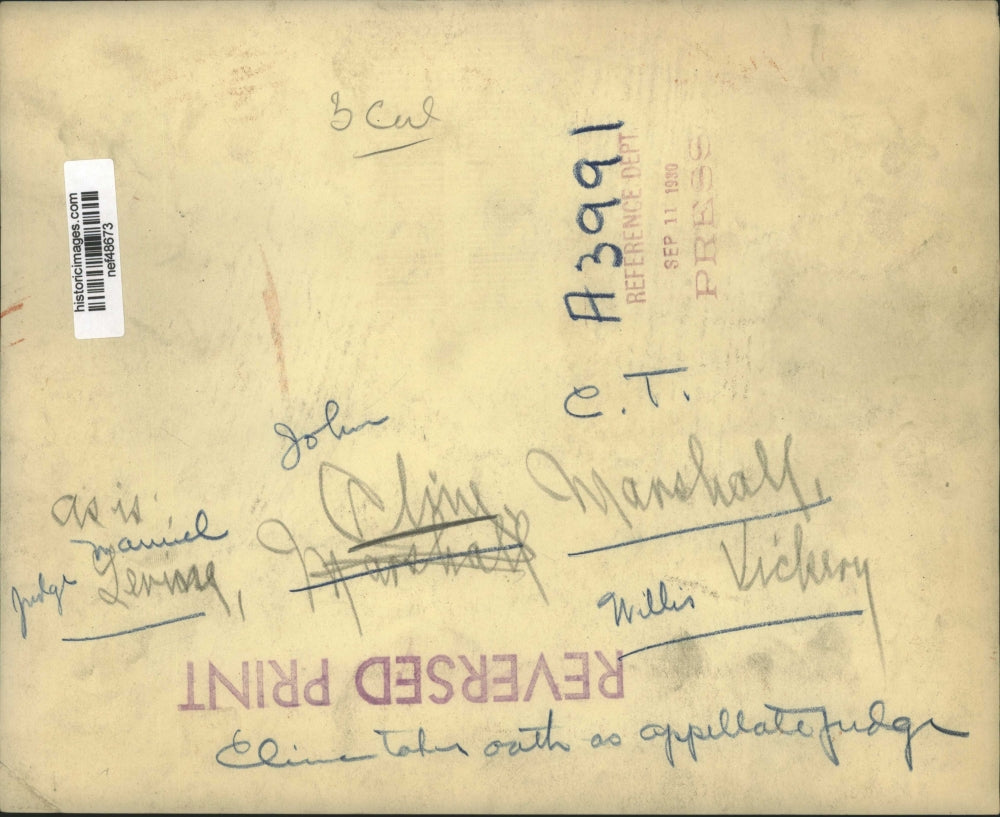 3 Col
A3991
REFERENCE DEPT.
SEP 11 1930
PRESS
historicimages.com
nef48673
C. T.
John
Cline
Marshall,
as is.
Manuel
Judge
Levine,
Marshall
Willis
Vickery
REVERSED PRINT
Cline takes oath as appellate judge